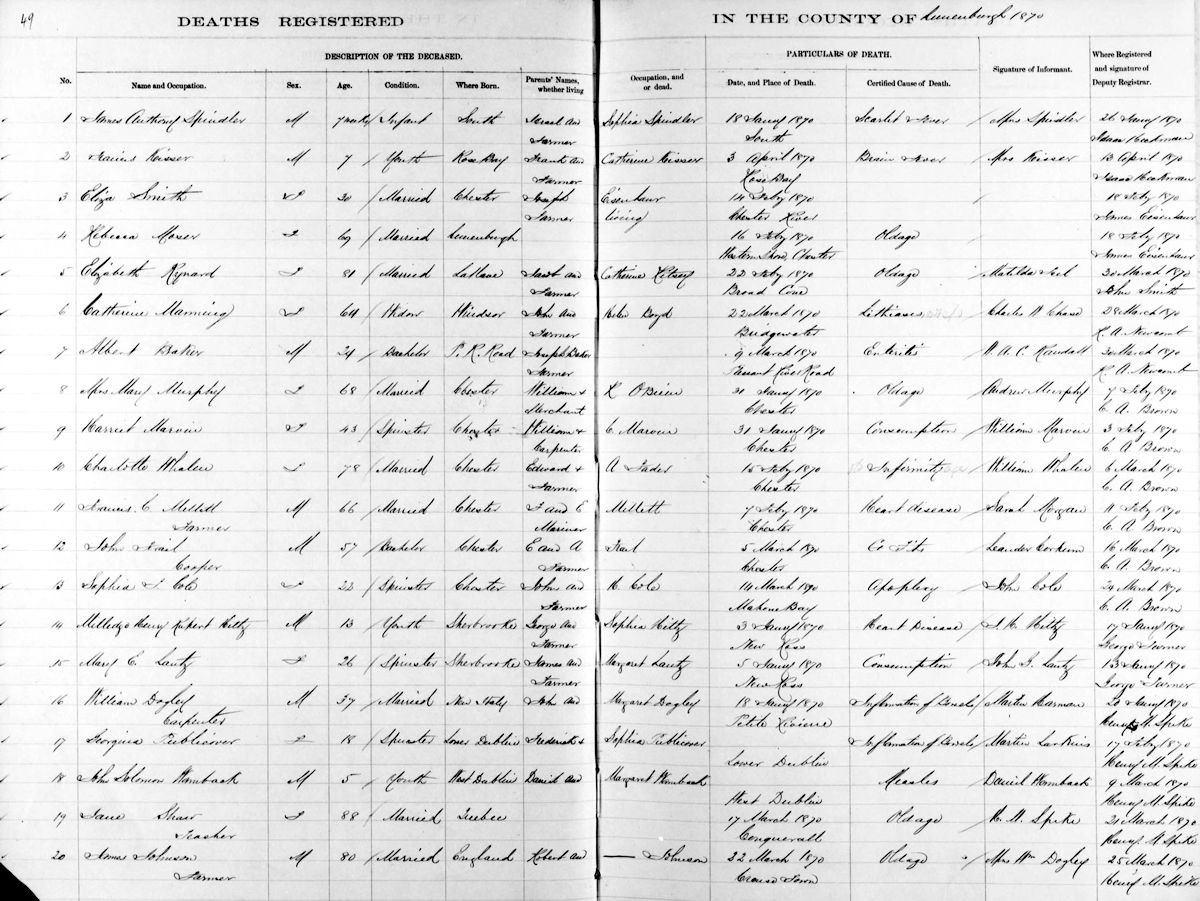 49
DEATHS REGISTERED IN THE COUNTY OF Lunenburgh 1870
DESCRIPTION OF THE DECEASED. PARTICULARS OF DEATH.
No. Name and Occupation. Sex. Age. Condition. Where Born. Parents' Names, whether living or dead. Occupation, and Date, and Place of Death. Certified Cause of Death. Signature of Informant. Where Registered and signature of Deputy Registrar.
1 James Anthony Spindler M 7 weeks Infant South Israel and Sophia Spindler 18 Jany 1870 Scarlet Fever Mrs Spindler 26 Jany 1870
Farmer South Isaac Heckman
2 Keisser M 7 Youth Rose Bay Frank and Catherine Keisser 3 April 1870 Brain Fever Mrs Keisser 13 April 1870
Farmer Rose Bay Isaac Heckman
3 Eliza Smith F 20 Married Chester Joseph Eisenhaur 14 Feby 1870 18 Feby 1870
Farmer living Chester River James Eisenhaur
4 Rebecca Moser F 69 Married Lunenburgh 16 Feby 1870 Old age 18 Feby 1870
Western Shore, Chester James Eisenhaur
5 Elizabeth Rynard F 81 Married LaHave Jacob and Catherine 22 Feby 1870 Old age Matilda 20 March 1870
Farmer Broad Cove John Smith
6 Catherine Manning F 64 Widow Windsor John and Helen Boyd 22 March 1870 Charles W Chase 28 March 1870
Farmer Bridgewater H. A. Newcomb
7 Albert Baker M 24 Bachelor P. R. Road Joseph Baker 9 March 1870 Enteritis W. A. C. Randall 30 March 1870
Farmer Pleasant River Road H. A. Newcomb
8 Mrs Mary Murphy F 68 Married Chester William & K OBrien 21 Jany 1870 Old age Andrew Murphy 7 Feby 1870
Merchant Chester C. A. Brown
9 Harriet Marvin F 43 Spinster Chester William & C. Marvin 31 Jany 1870 Consumption William Marvin 3 Feby 1870
Carpenter Chester C. A. Brown
10 Charlotte Whalen F 78 Married Chester Edward & A Fader 15 Feby 1870 Infirmity William Whalen 6 March 1870
Farmer Chester C. A. Brown
11 Francis C. Millett M 66 Married Chester F and E Millett 7 Feby 1870 Heart disease Sarah Morgan 11 Feby 1870
Farmer Mariner Chester C. A. Brown
12 John Frail M 57 Bachelor Chester E and A Frail 5 March 1870 Fits Leander Corkum 16 March 1870
Cooper Farmer Chester C. A. Brown
13 Sophia F. Cole F 22 Spinster Chester John and H. Cole 14 March 1870 Apoplexy John Cole 24 March 1870
Farmer Mahone Bay C. A. Brown
14 Milledge Henry Rupert Hiltz M 13 Youth Sherbrooke George and Sophia Hiltz 3 Jany 1870 Heart Disease J. H. Hiltz 17 Jany 1870
Farmer New Ross George Turner
15 Mary E. Lantz F 26 Spinster Sherbrooke James and Margaret Lantz 5 Jany 1870 Consumption John G. Lantz 13 Jany 1870
Farmer New Ross George Turner
16 William Dogley M 37 Married New Italy John and Margaret Dogley 18 Jany 1870 Inflamation of Bowels Martin Harman 20 Jany 1870
Carpenter Petite Riviere Henry M. Spike
17 Georgina Publicover F 18 Spinster Lower Dublin Frederick & Sophia Publicover Inflamation of Bowels Martin Larkins 17 Feby 1870
Lower Dublin Henry M. Spike
18 John Solomon Wamback M 5 Youth West Dublin Daniel and Margaret Wamback Measles Daniel Wamback 9 March 1870
West Dublin Henry M. Spike
19 Jane Shaw F 88 Married Quebec 17 March 1870 Old age H. M. Spike 21 March 1870
Teacher Conquerall Henry M. Spike
20 James Johnson M 80 Married England Robert and — Johnson 22 March 1870 Old age Mrs Wm Dogley 25 March 1870
Farmer Crouse Town Henry M. Spike